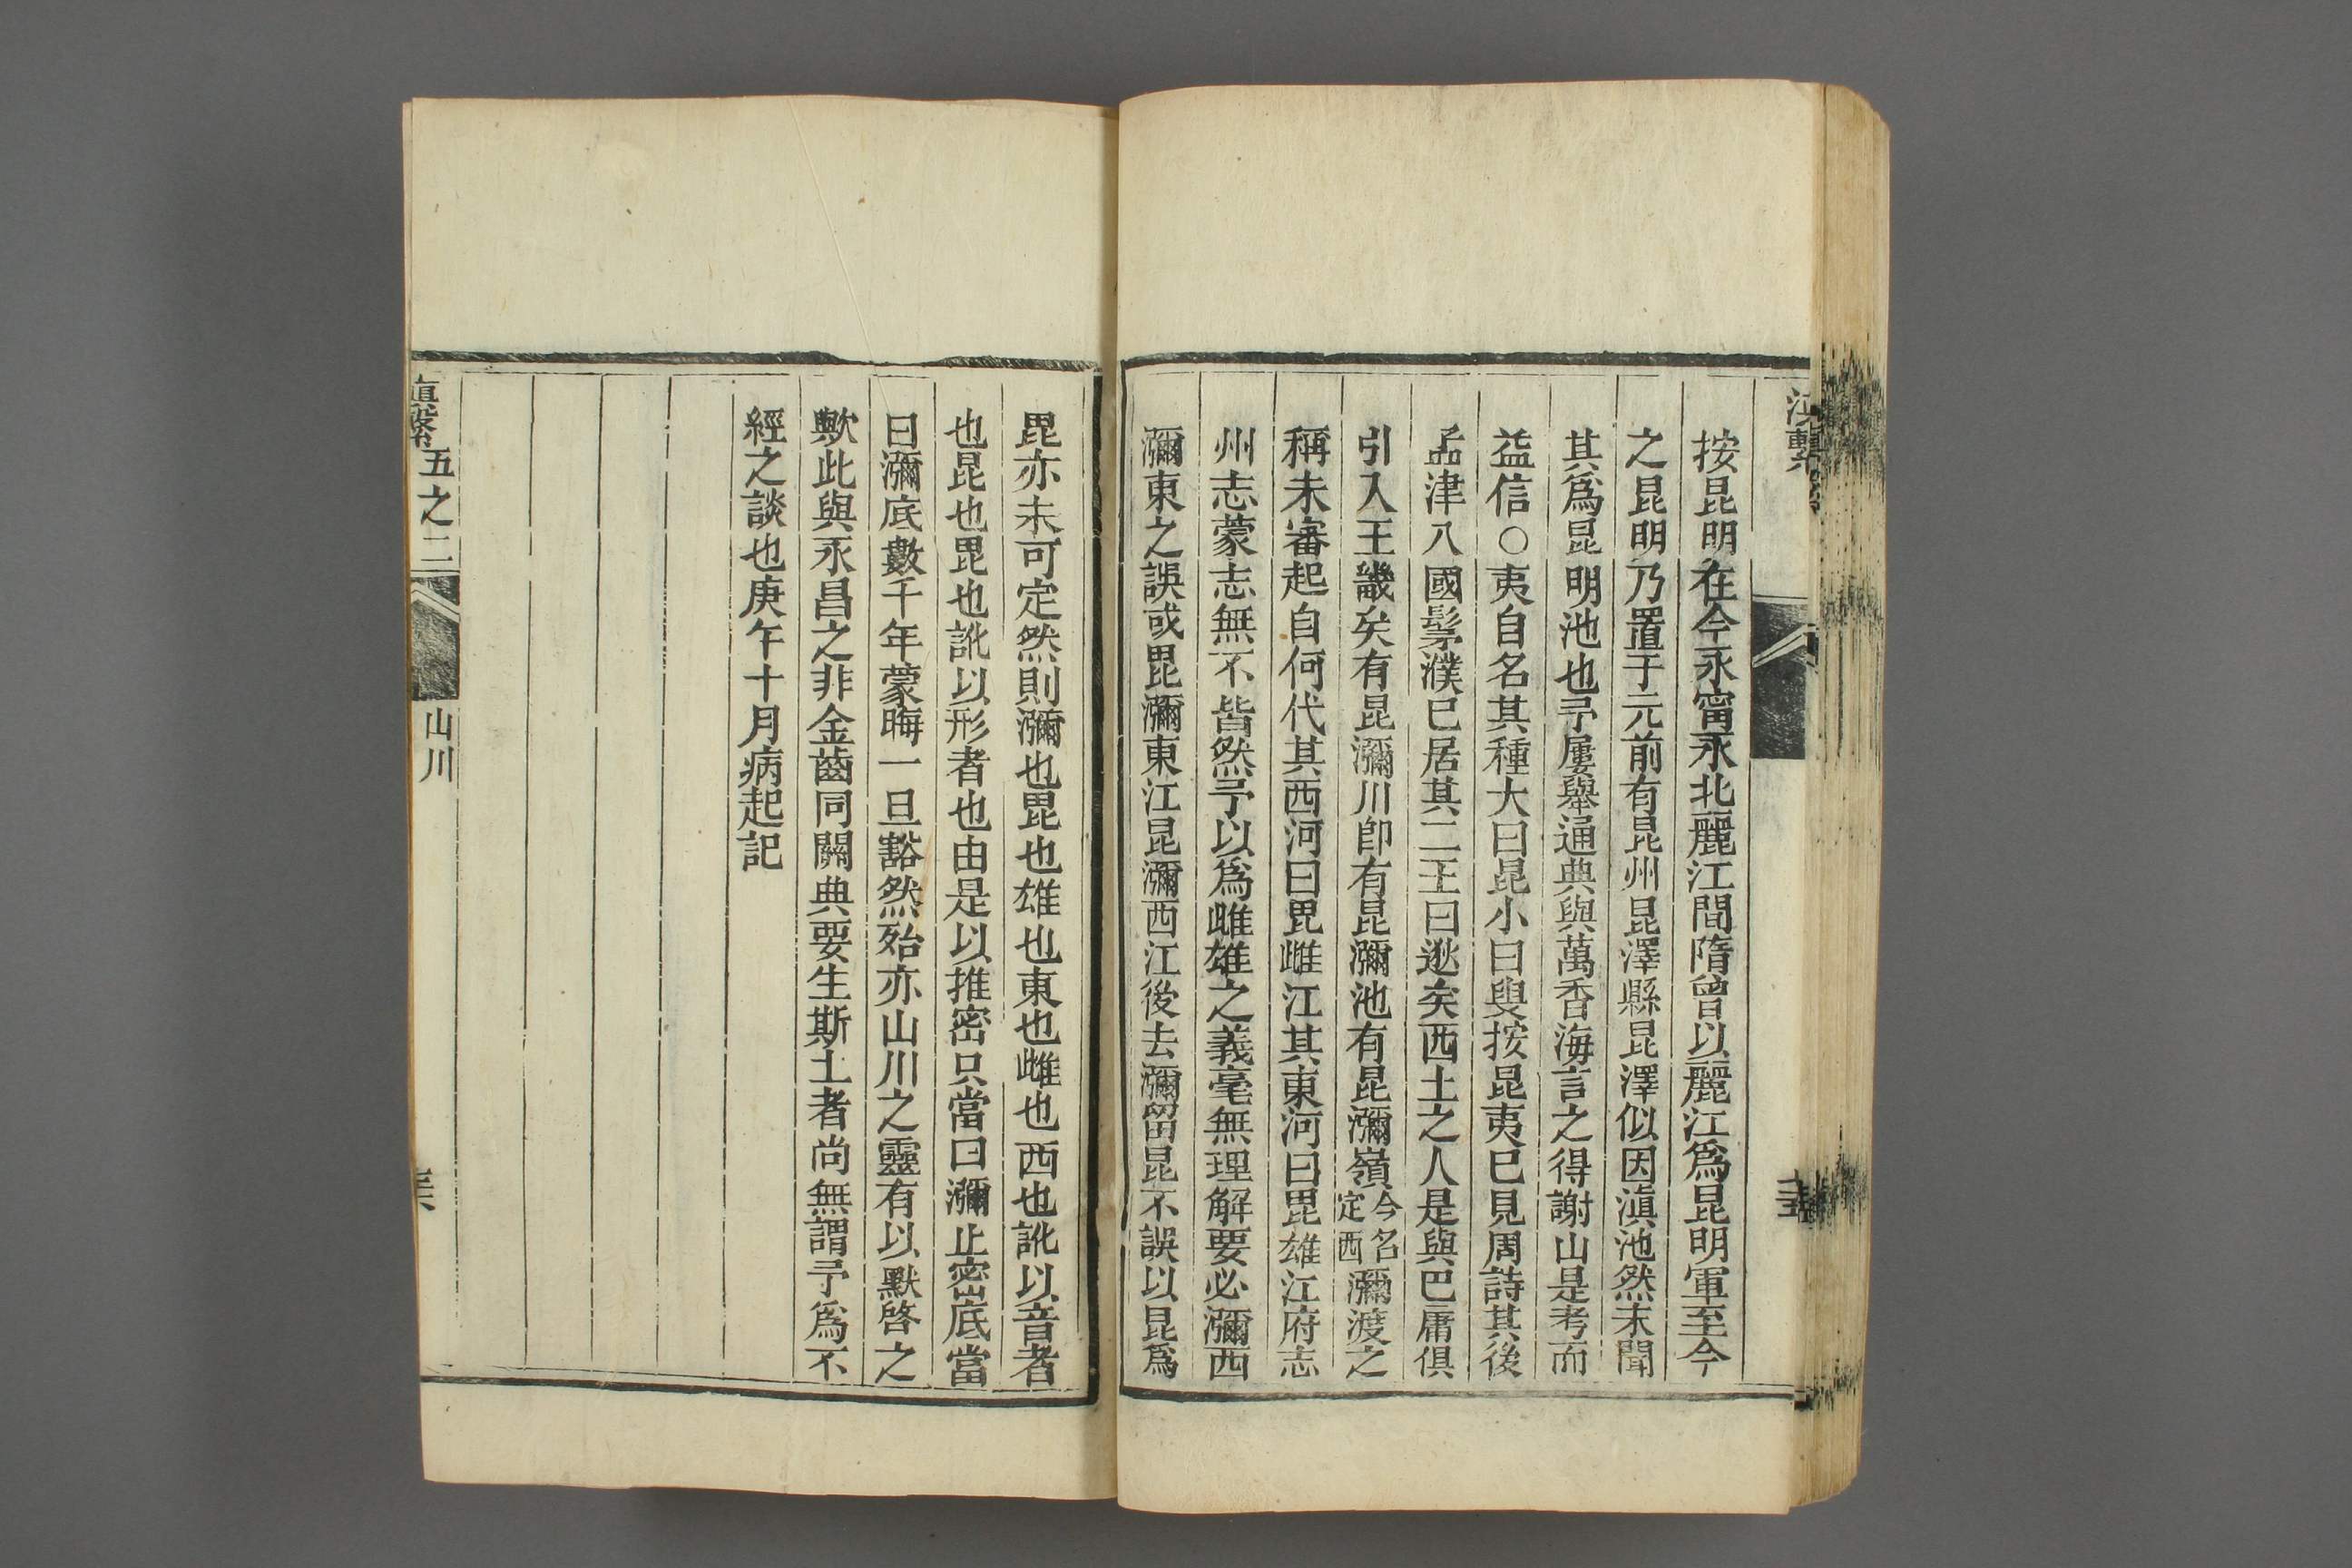 按昆明在今永甯永北麗江間隋曾以麗江爲昆明軍至今
之昆明乃置于元前有昆州昆澤縣昆澤似因滇池然未聞
其爲昆明池也予屢舉通典與萬香海言之得謝山是考而
益信○夷自名其種大曰昆小曰叟按昆夷已見周詩其後
孟津八國髳濮已居其二王曰逖矣西土之人是與巴庸俱
引入王畿矣有昆瀰川卽有昆瀰池有昆瀰嶺今名定西瀰渡之
稱未審起自何代其西河曰毘雌江其東河曰毘雄江府志
州志蒙志無不皆然予以爲雌雄之義毫無理解要必瀰西
瀰東之誤或毘瀰東江昆瀰西江後去瀰留昆不誤以昆爲
毘亦未可定然則瀰也毘也雄也東也雌也西也訛以音者
也昆也毘也訛以形者也由是以推密只當曰瀰止密底當
曰瀰底數千年蒙晦一旦豁然殆亦山川之靈有以默啓之
歟此與永昌之非金齒同關典要生斯土者尚無謂予爲不
經之談也庚午十月病起記
滇繫 五之二
山川